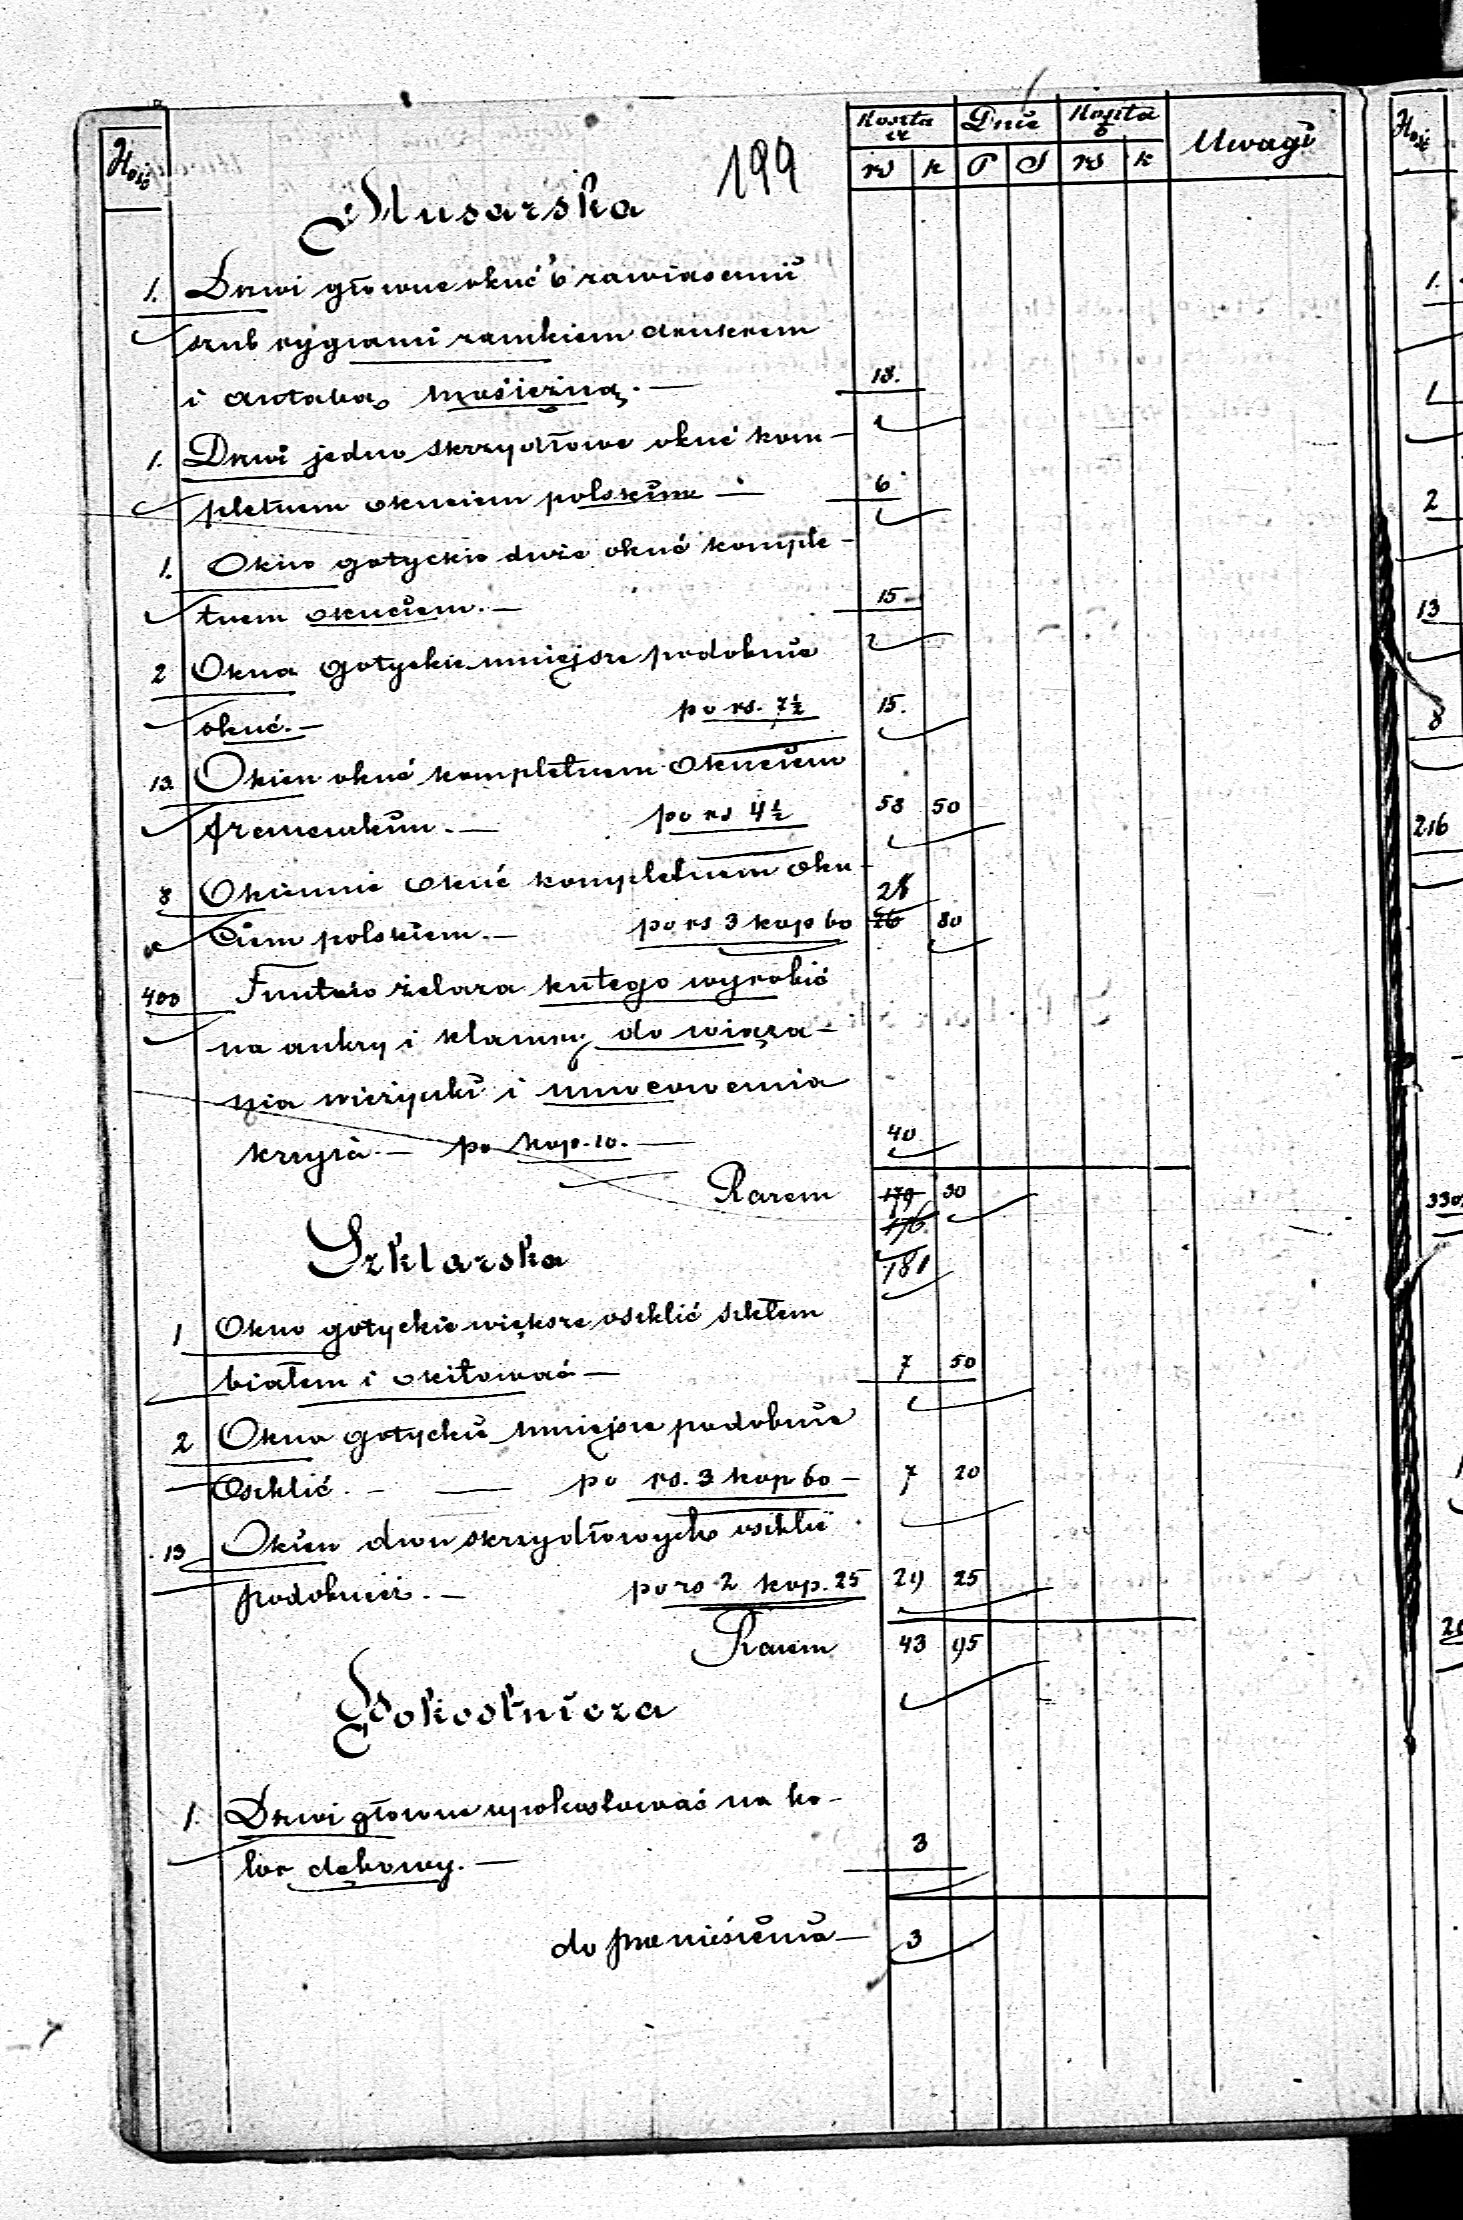 Ilość
Koszta a
Dnie
Koszta b
Uwagi
rs k P S rs k
199
Slusarska
1. Drzwi główne okuć 6 zawiasami
szub ryglami zamkiem druckrem
i antabą mosiężną. — 18.
1. Drzwi jedno skrzydłowe okuć kom-
pletnem okuciem polskim — 6
1. Okno gotyckie duże okuć komple-
tnem okuciem. — 15
2 Okna gotyckie mniejsze podobnie
okuć. — po rs. 7½ 15.
13. Okien okuć kompletnem okuciem
po rs 4½ 58 50
8 Okiennic okuć kompletnem oku-
ciem polskiem. — po rs 3 kop 60 28 26 80
400 Funtów żelaza kutego wyrobić
na ankry i klamry do wiąza-
nia wieżyczki i umocowania
krzyża. — po kop. 10. — 40
Razem 179 30
176.
181
Szklarska
1 Okno gotyckie większe osklić szkłem
białem i okitować — 7 50
2 Okna gotyckie mniejsze podobnie
Osklić. — — po rs. 3 kop 60 — 7 20
13 Okien dwu skrzydłowych osklić
podobnież. — po rs 2 kop. 25 29 25
Razem 43 95
Pokostnicza
1. Drzwi główne upokostować na ko-
lor dębowy. — 3
do przeniesienia — 3
Ilość
1.
1
2
13
8
216
330